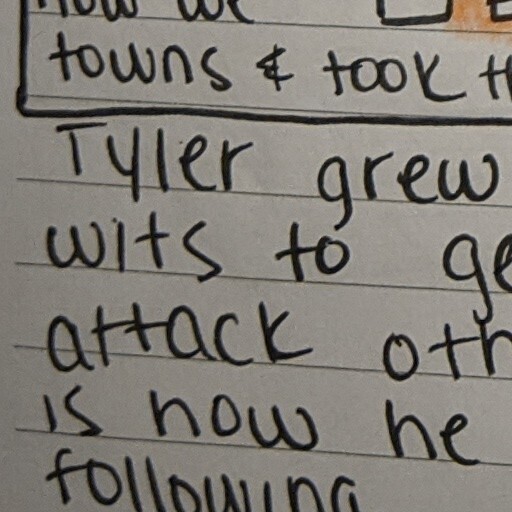 how we
towns & took th
Tyler grew
wits to ge
attack oth
is how he
following